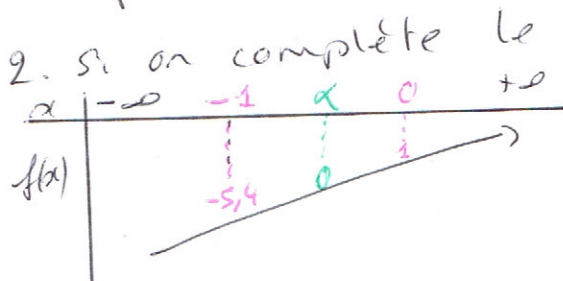 2. si on complète le
x -∞ -1 α 0 +∞
f(x) -5,4 0 1